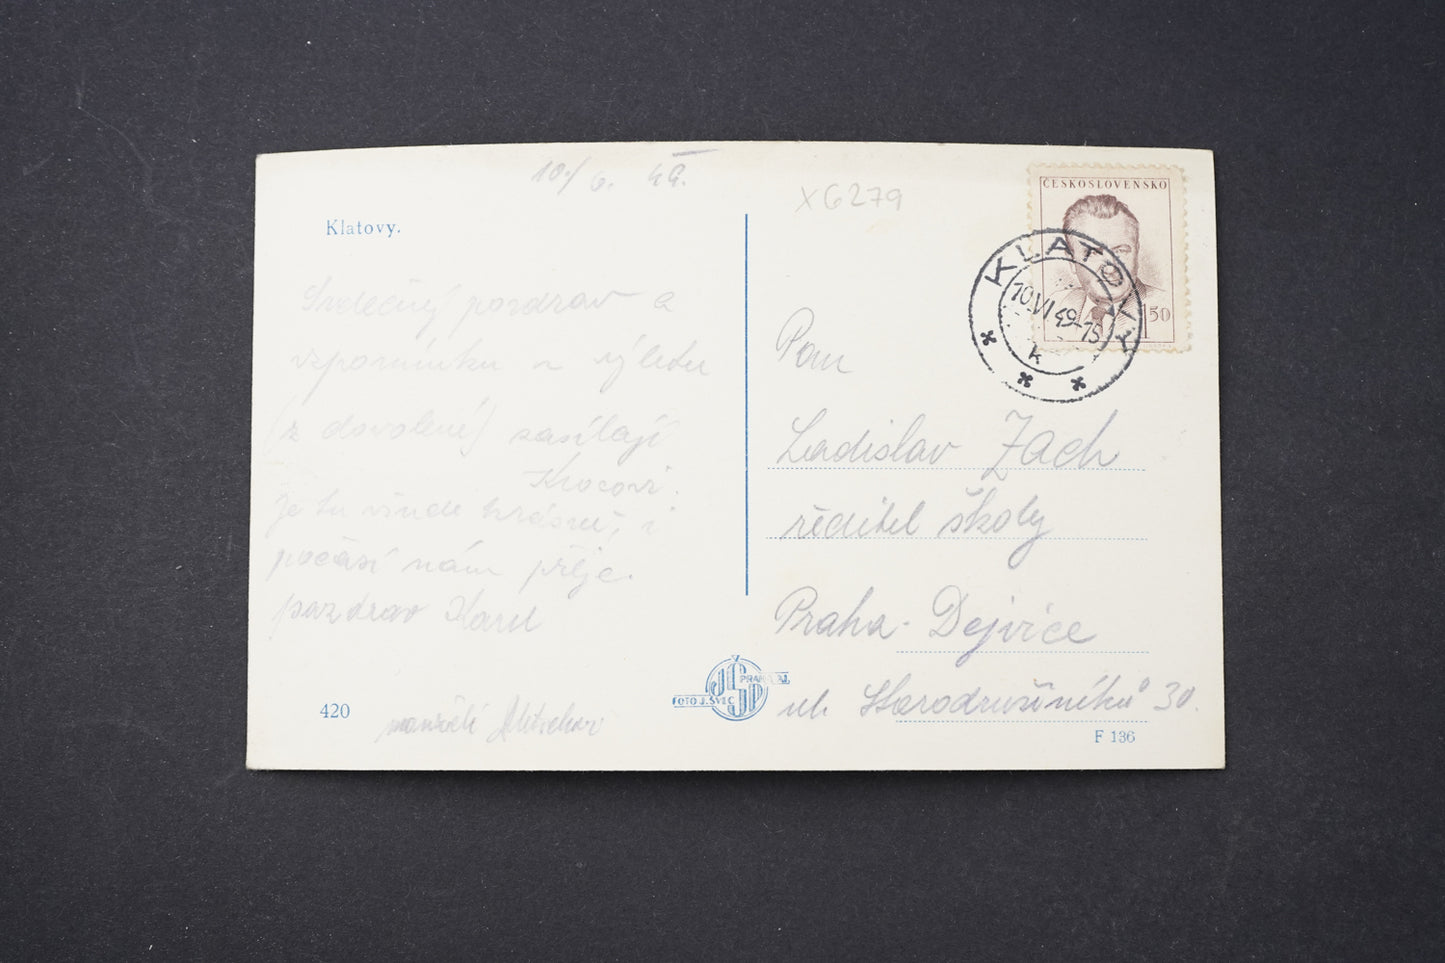 10./6. 49.
X6279
Klatovy.
Srdečný pozdrav a
vzpomínku z výletu
(z dovolené) zasílají
Krocovi.
Je tu všude krásně, i
počasí nám přeje.
pozdrav Karel
manželé
420
ČESKOSLOVENSKO
1 50
KLATOVY
10.VI 49-15
k
Pan
Ladislav Zach
ředitel školy
Praha - Dejvice
ul. Starodružiníků 30.
FOTO J. ŠVEC
PRAHA XI.
JŠP
F 136